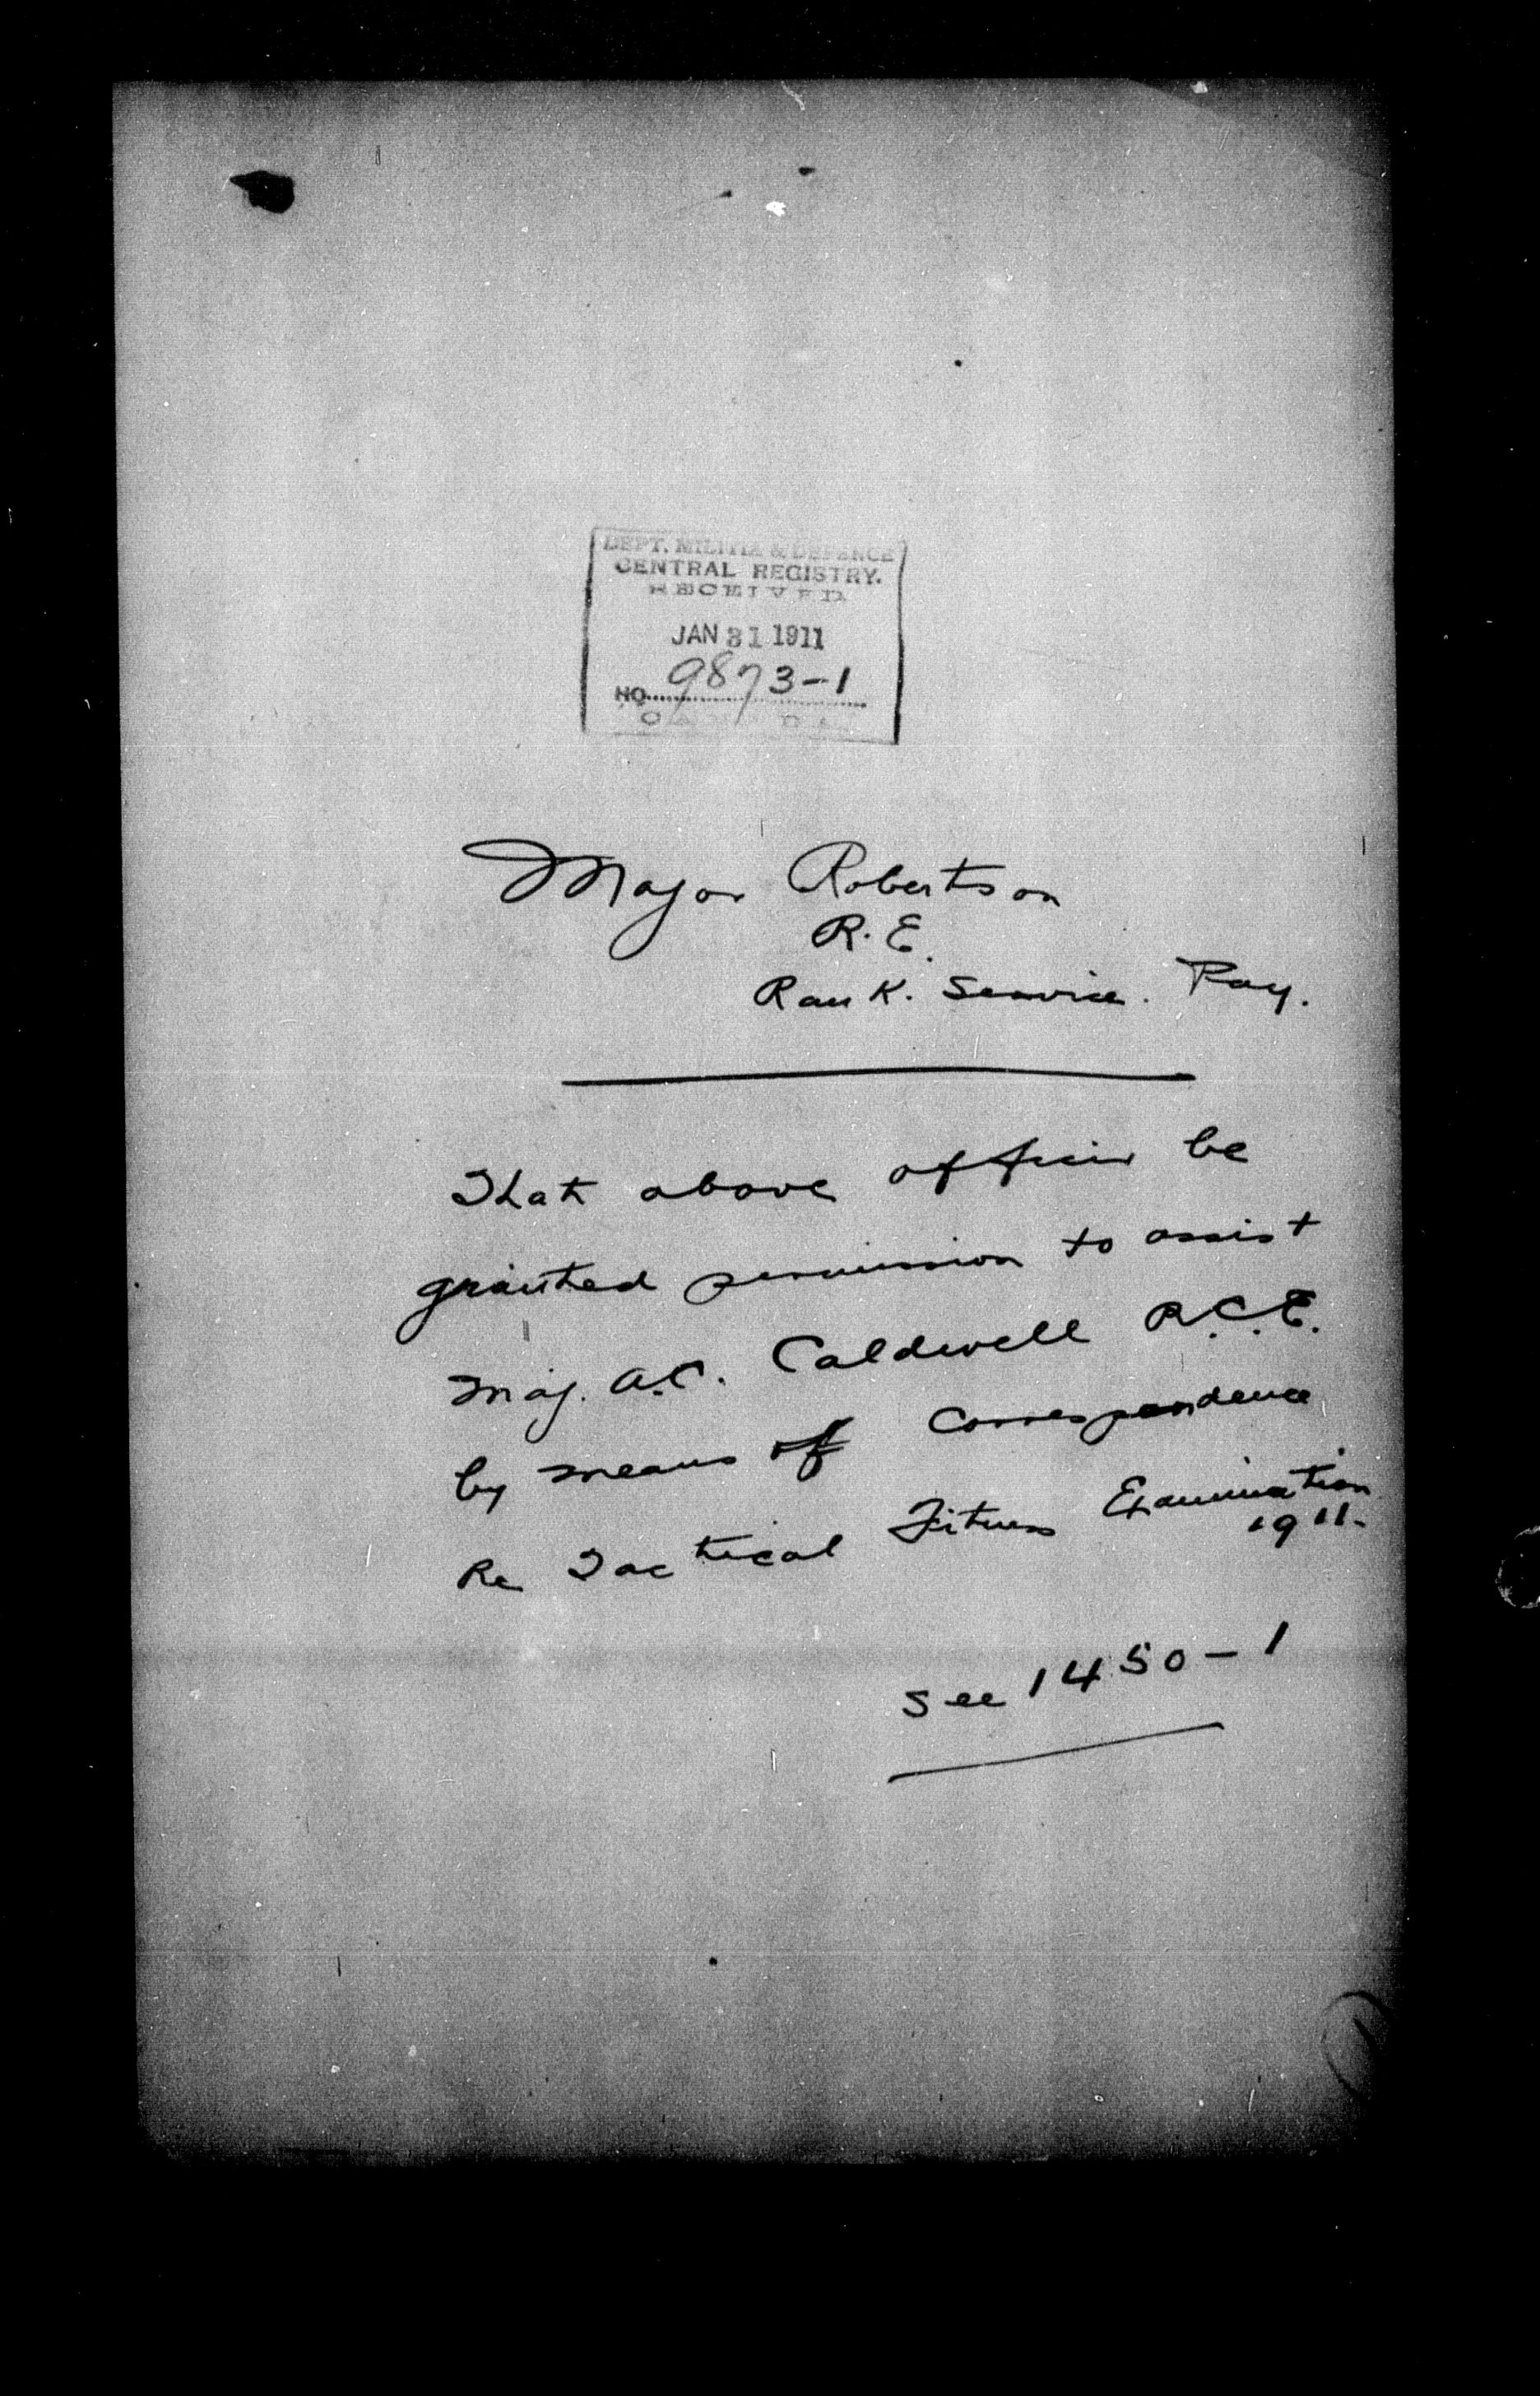 DEPT. MILITIA & DEFENCE
CENTRAL REGISTRY.
RECEIVED
JAN 31 1911
HQ 9873-1
CANADA
Major Robertson
R.E.
Rank. Service. Pay.
That above officer be
granted permission to assist
Maj. A.C. Caldwell R.C.E.
by means of correspondence
Re Tactical Fitness Examination
1911.
See 1450-1